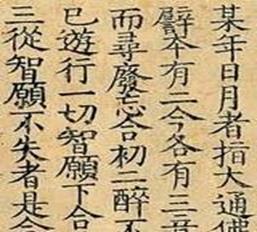 某年日月者指大通佛
譬本有二今各有三吾
而尋廢忘合初二醉不
已遊行一切智願下合
三從智願不失者是合